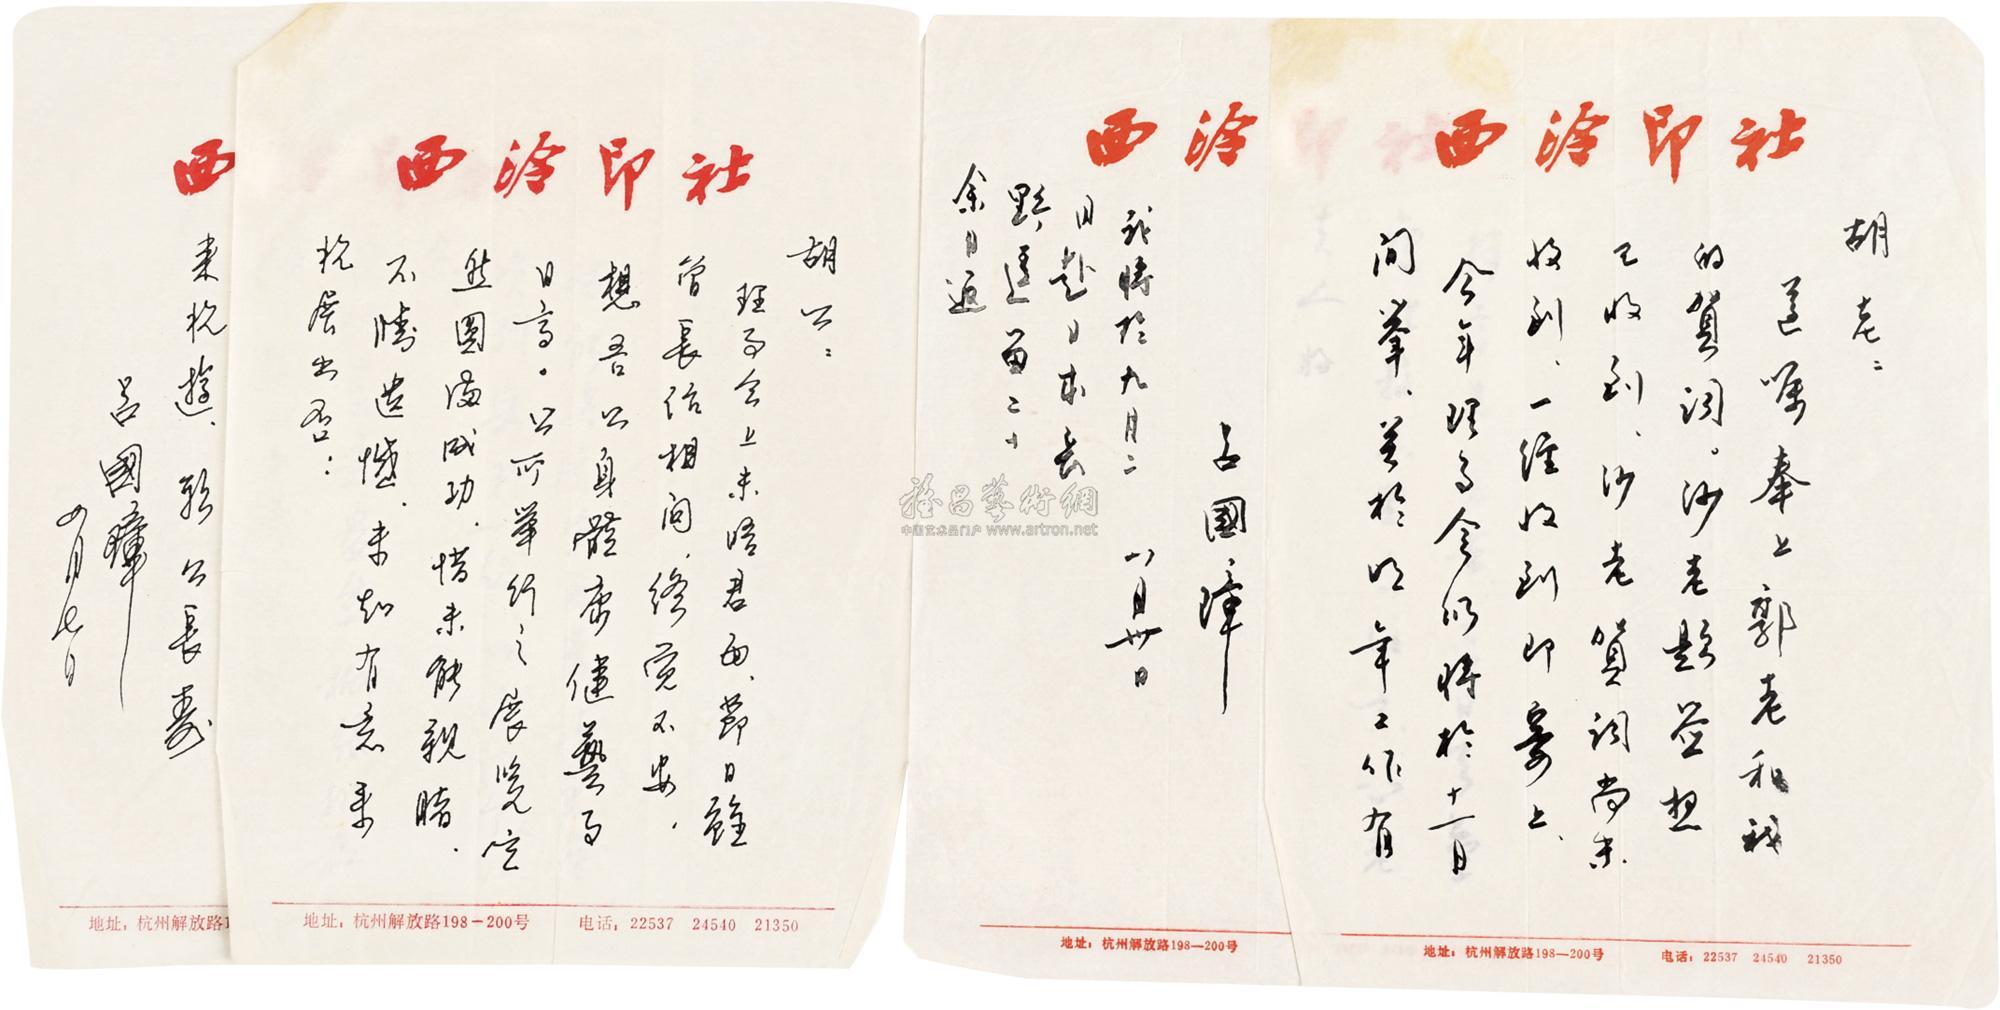 西泠印社
胡老：
遵嘱奉上郭老和我
的賀词。沙老题签想
已收到、沙老賀词尚未
收到、一经收到即寄上、
今年理事会仍将於十一月
间举、至於明年工作有
地址：杭州解放路198—200号
电话：22537 24540 21350
西泠
吕國璋
八月卅日
我將於九月二
日赴日本長
野、逗留二十
余日返
地址：杭州解放路198—200号
西泠印社
胡公：
理事会上未晤君面、節日雖
曾長信相问、终觉不安、
想吾公身體康健藝事
日高。公所举行之展览定
然圆满成功、惜未能親睹、
不勝遗憾、未知有意来
杭展出否：
地址：杭州解放路198－200号
电话：22537 24540 21350
西
来杭遊、颂公長寿
吕國璋
四月七日
地址：杭州解放路1
雅昌藝術網
中国艺术品门户 www.artron.net